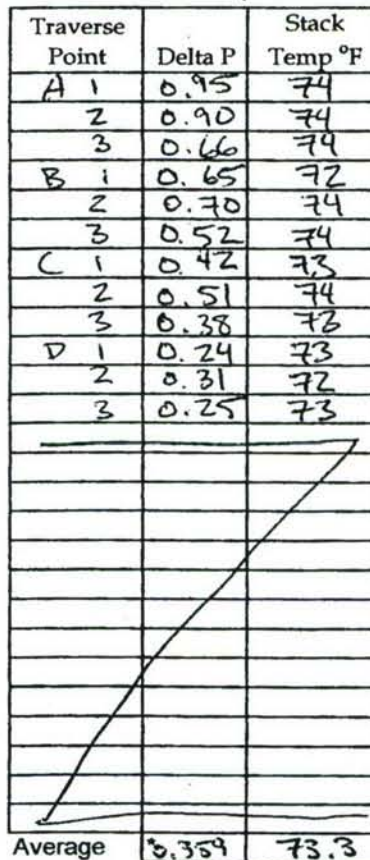 Traverse Point Delta P Stack Temp °F
A 1 0.95 74
2 0.90 74
3 0.66 74
B 1 0.65 72
2 0.70 74
3 0.52 74
C 1 0.42 73
2 0.51 74
3 0.38 73
D 1 0.24 73
2 0.31 72
3 0.25 73
Average 0.359 73.3